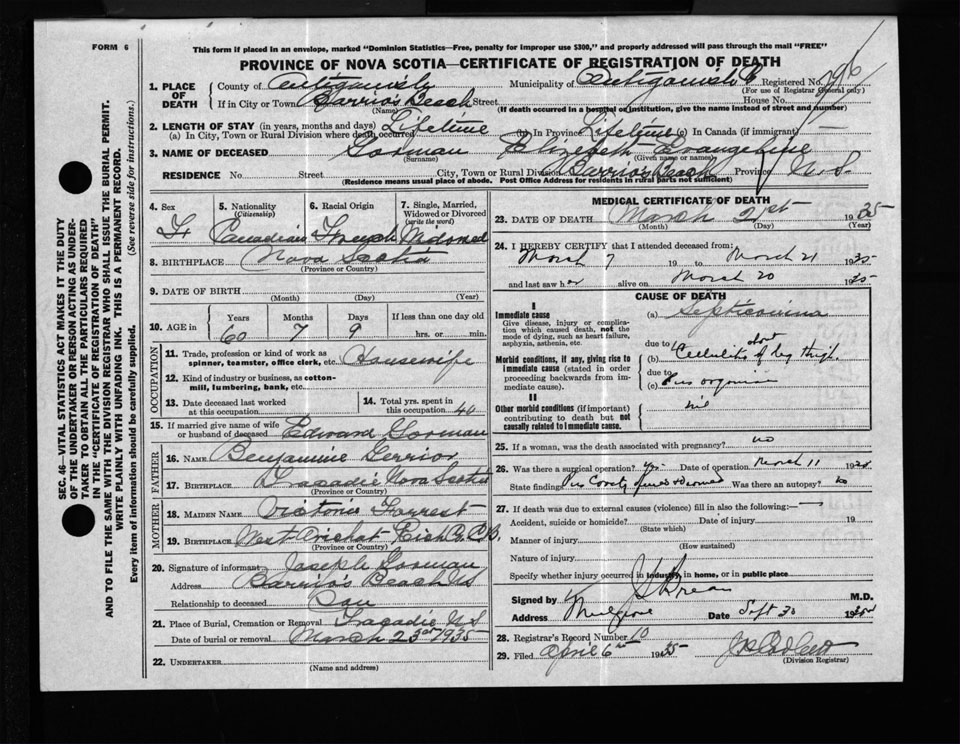 FORM 6
This form if placed in an envelope, marked "Dominion Statistics—Free, penalty for improper use $300," and properly addressed will pass through the mail "FREE"
PROVINCE OF NOVA SCOTIA—CERTIFICATE OF REGISTRATION OF DEATH
SEC. 46—VITAL STATISTICS ACT MAKES IT THE DUTY
OF THE UNDERTAKER OR PERSON ACTING AS UNDER-
TAKER TO OBTAIN ALL THE PARTICULARS REQUIRED
IN THE "CERTIFICATE OF REGISTRATION OF DEATH"
AND TO FILE THE SAME WITH THE DIVISION REGISTRAR WHO SHALL ISSUE THE BURIAL PERMIT.
WRITE PLAINLY WITH UNFADING INK. THIS IS A PERMANENT RECORD.
Every item of information should be carefully supplied. (See reverse side for instructions.)
1. PLACE OF DEATH County of Antigonish Municipality of Antigonish Co Registered No.
(For use of Registrar General only)
If in City or Town Barrios Beach Street House No.
(Name) (If death occurred in a hospital or institution, give the name instead of street and number)
2. LENGTH OF STAY (in years, months and days)
(a) In City, Town or Rural Division where death occurred Lifetime (b) In Province Lifetime (c) In Canada (if immigrant) —
3. NAME OF DECEASED Gorman Elizebeth Evangeline
(Surname) (Given name or names)
RESIDENCE No. Street City, Town or Rural Division Barrios Beach Province N.S.
(Residence means usual place of abode. Post Office Address for residents in rural parts not sufficient)
4. Sex F
5. Nationality (Citizenship) Canadian
6. Racial Origin French
7. Single, Married, Widowed or Divorced (write the word) Widowed
8. BIRTHPLACE Nova Scotia
(Province or Country)
9. DATE OF BIRTH
(Month) (Day) (Year)
10. AGE in Years 60 Months 7 Days 9 If less than one day old hrs. or min.
OCCUPATION
11. Trade, profession or kind of work as spinner, teamster, office clerk, etc. Housewife
12. Kind of industry or business, as cotton-mill, lumbering, bank, etc.
13. Date deceased last worked at this occupation
14. Total yrs. spent in this occupation 40
15. If married give name of wife or husband of deceased Edward Gorman
FATHER
16. NAME Benjamine Gerrior
17. BIRTHPLACE Tracadie Nova Scotia
(Province or Country)
MOTHER
18. MAIDEN NAME Victoria Forrest
19. BIRTHPLACE West Arichat Rich Co. C.B.
(Province or Country)
20. Signature of informant Joseph Gorman
Address Barrio's Beach NS
Relationship to deceased
21. Place of Burial, Cremation or Removal Tracadie N S
Date of burial or removal March 23rd 1935
22. UNDERTAKER
(Name and address)
MEDICAL CERTIFICATE OF DEATH
23. DATE OF DEATH March 21st 1935
(Month) (Day) (Year)
24. I HEREBY CERTIFY that I attended deceased from:
March 7 19 to March 21 1935
and last saw her alive on March 20 1935
CAUSE OF DEATH
I
Immediate cause
Give disease, injury or complication which caused death, not the mode of dying, such as heart failure, asphyxia, asthenia, etc.
(a) Septicemia
Morbid conditions, if any, giving rise to immediate cause (stated in order proceeding backwards from immediate cause).
due to
(b) Cellulitis of leg thigh.
due to
(c)
II
Other morbid conditions (if important) contributing to death but not causally related to immediate cause.
nil
25. If a woman, was the death associated with pregnancy? no
26. Was there a surgical operation? yes Date of operation March 11 1935
State findings Was there an autopsy? no
27. If death was due to external causes (violence) fill in also the following:
Accident, suicide or homicide? Date of injury 19
(State which)
Manner of injury
(How sustained)
Nature of injury
Specify whether injury occurred in industry, in home, or in public place
Signed by M.D.
Address Mulgrave Date Sept 30 1935
28. Registrar's Record Number 10
29. Filed April 6 1935
(Division Registrar)